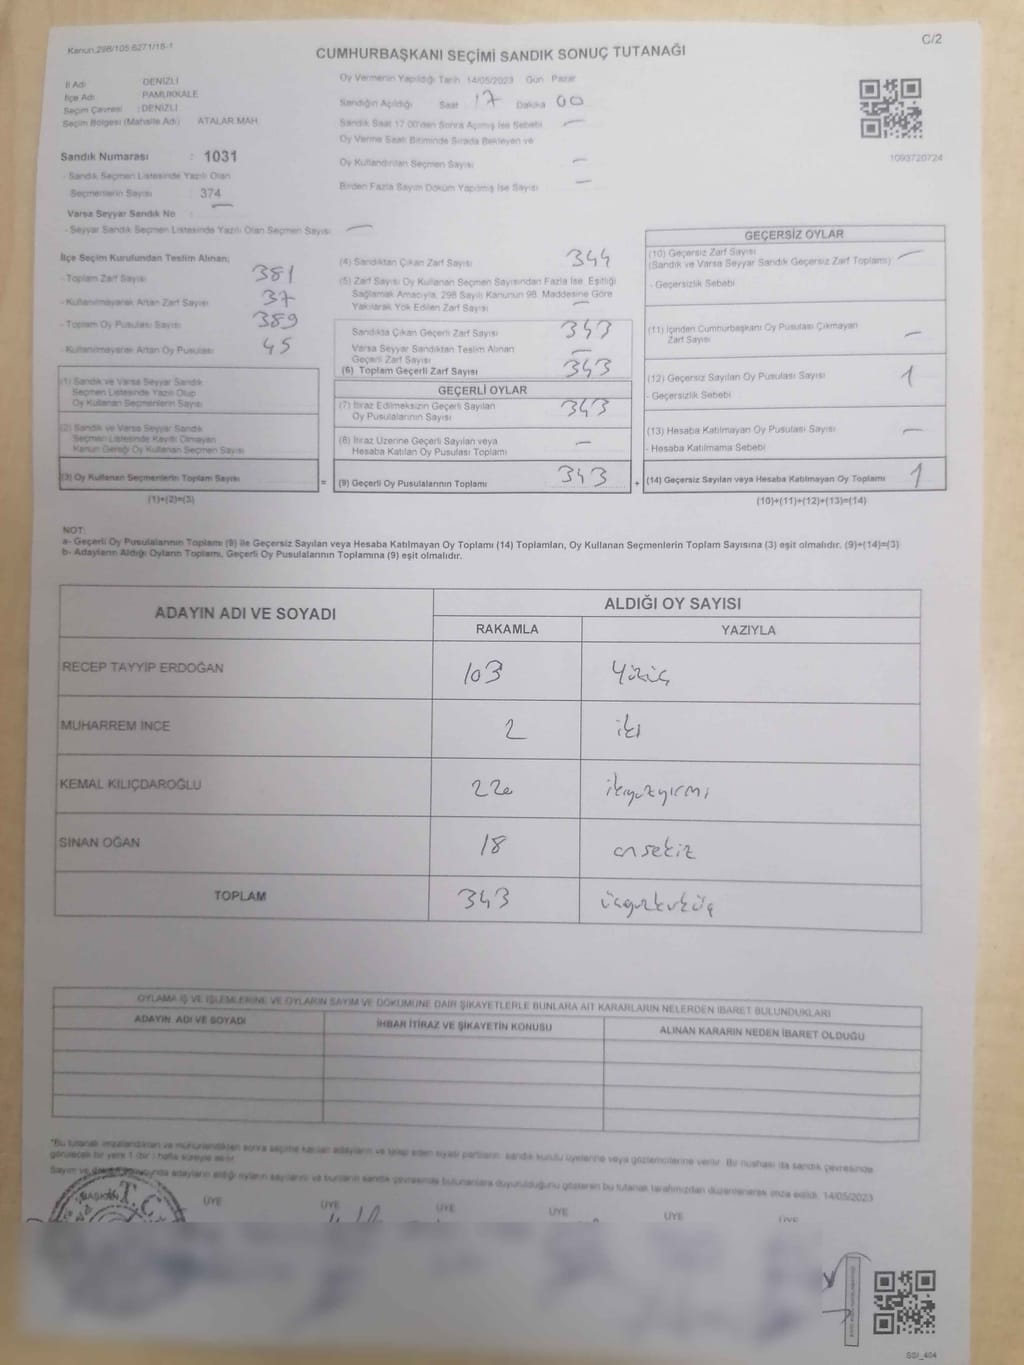 Kanun,298/105,6271/18-1
C/2
CUMHURBAŞKANI SEÇİMİ SANDIK SONUÇ TUTANAĞI
İl Adı DENİZLİ
İlçe Adı PAMUKKALE
Seçim Çevresi : DENİZLİ
Seçim Bölgesi (Mahalle Adı) ATALAR MAH.
Sandık Numarası : 1031
- Sandık Seçmen Listesinde Yazılı Olan
Seçmenlerin Sayısı : 374
Varsa Seyyar Sandık No —
- Seyyar Sandık Seçmen Listesinde Yazılı Olan Seçmen Sayısı —
Oy Vermenin Yapıldığı Tarih 14/05/2023 Gün Pazar
Sandığın Açıldığı Saat 17 Dakika 00
Sandık Saat 17.00'den Sonra Açılmış İse Sebebi —
Oy Verme Saati Bitiminde Sırada Bekleyen ve
Oy Kullandırılan Seçmen Sayısı —
Birden Fazla Sayım Döküm Yapılmış İse Sayısı —
1093720724
İlçe Seçim Kurulundan Teslim Alınan;
- Toplam Zarf Sayısı 381
- Kullanılmayarak Artan Zarf Sayısı 37
- Toplam Oy Pusulası Sayısı 389
- Kullanılmayarak Artan Oy Pusulası 45
(1) Sandık ve Varsa Seyyar Sandık
Seçmen Listesinde Yazılı Olup
Oy Kullanan Seçmenlerin Sayısı
(2) Sandık ve Varsa Seyyar Sandık
Seçmen Listesinde Kayıtlı Olmayan
Kanun Gereği Oy Kullanan Seçmen Sayısı
(3) Oy Kullanan Seçmenlerin Toplam Sayısı
(1)+(2)=(3)
(4) Sandıktan Çıkan Zarf Sayısı 344
(5) Zarf Sayısı Oy Kullanan Seçmen Sayısından Fazla İse, Eşitliği
Sağlamak Amacıyla, 298 Sayılı Kanunun 98. Maddesine Göre
Yakılarak Yok Edilen Zarf Sayısı —
Sandıkta Çıkan Geçerli Zarf Sayısı 343
Varsa Seyyar Sandıktan Teslim Alınan
Geçerli Zarf Sayısı —
(6) Toplam Geçerli Zarf Sayısı 343
GEÇERLİ OYLAR
(7) İtiraz Edilmeksizin Geçerli Sayılan
Oy Pusulalarının Sayısı 343
(8) İtiraz Üzerine Geçerli Sayılan veya
Hesaba Katılan Oy Pusulası Toplamı —
= (9) Geçerli Oy Pusulalarının Toplamı 343
GEÇERSİZ OYLAR
(10) Geçersiz Zarf Sayısı —
(Sandık ve Varsa Seyyar Sandık Geçersiz Zarf Toplamı)
- Geçersizlik Sebebi
(11) İçinden Cumhurbaşkanı Oy Pusulası Çıkmayan
Zarf Sayısı —
(12) Geçersiz Sayılan Oy Pusulası Sayısı 1
- Geçersizlik Sebebi
(13) Hesaba Katılmayan Oy Pusulası Sayısı —
- Hesaba Katılmama Sebebi
+ (14) Geçersiz Sayılan veya Hesaba Katılmayan Oy Toplamı 1
(10)+(11)+(12)+(13)=(14)
NOT:
a- Geçerli Oy Pusulalarının Toplamı (9) ile Geçersiz Sayılan veya Hesaba Katılmayan Oy Toplamı (14) Toplamları, Oy Kullanan Seçmenlerin Toplam Sayısına (3) eşit olmalıdır. (9)+(14)=(3)
b- Adayların Aldığı Oyların Toplamı, Geçerli Oy Pusulalarının Toplamına (9) eşit olmalıdır.
ADAYIN ADI VE SOYADI
ALDIĞI OY SAYISI
RAKAMLA YAZIYLA
RECEP TAYYİP ERDOĞAN 103 Yüzüç
MUHARREM İNCE 2 iki
KEMAL KILIÇDAROĞLU 220 ikiyüzyirmi
SİNAN OĞAN 18 onsekiz
TOPLAM 343 üçyüzkırküç
OYLAMA İŞ VE İŞLEMLERİNE VE OYLARIN SAYIM VE DÖKÜMÜNE DAİR ŞİKAYETLERLE BUNLARA AİT KARARLARIN NELERDEN İBARET BULUNDUKLARI
ADAYIN ADI VE SOYADI İHBAR İTİRAZ VE ŞİKAYETİN KONUSU ALINAN KARARIN NEDEN İBARET OLDUĞU
*Bu tutanak imzalandıktan ve mühürlendikten sonra seçime katılan adayların ve talep eden siyasi partilerin sandık kurulu üyelerine veya gözlemcilerine verilir. Bir nüshası da sandık çevresinde
görülecek bir yere 1 (bir) hafta süreyle asılır.
adayların aldığı oyların sayılarını ve bunların sandık çevresinde bulunanlara duyurulduğunu gösteren bu tutanak tarafımızdan düzenlenerek imza edildi. 14/05/2023
BAŞKAN ÜYE ÜYE ÜYE ÜYE ÜYE ÜYE
T.C.